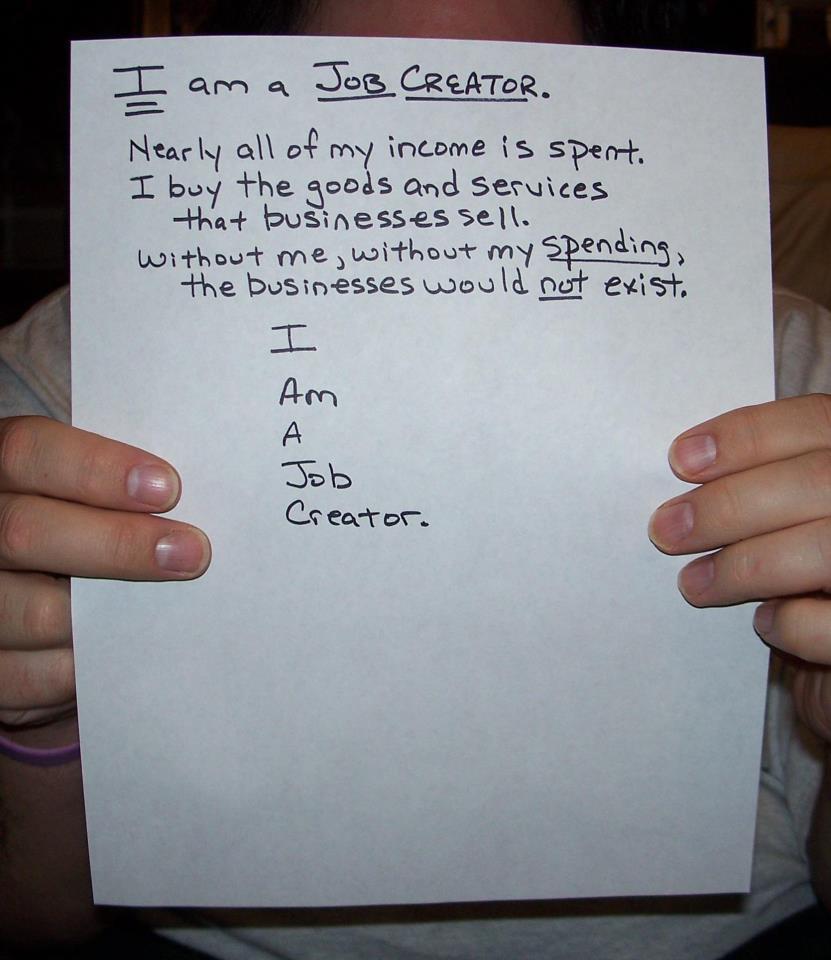 I am a JOB CREATOR.
Nearly all of my income is spent.
I buy the goods and services
that businesses sell.
Without me, without my spending,
the businesses would not exist.
I
Am
A
Job
Creator.